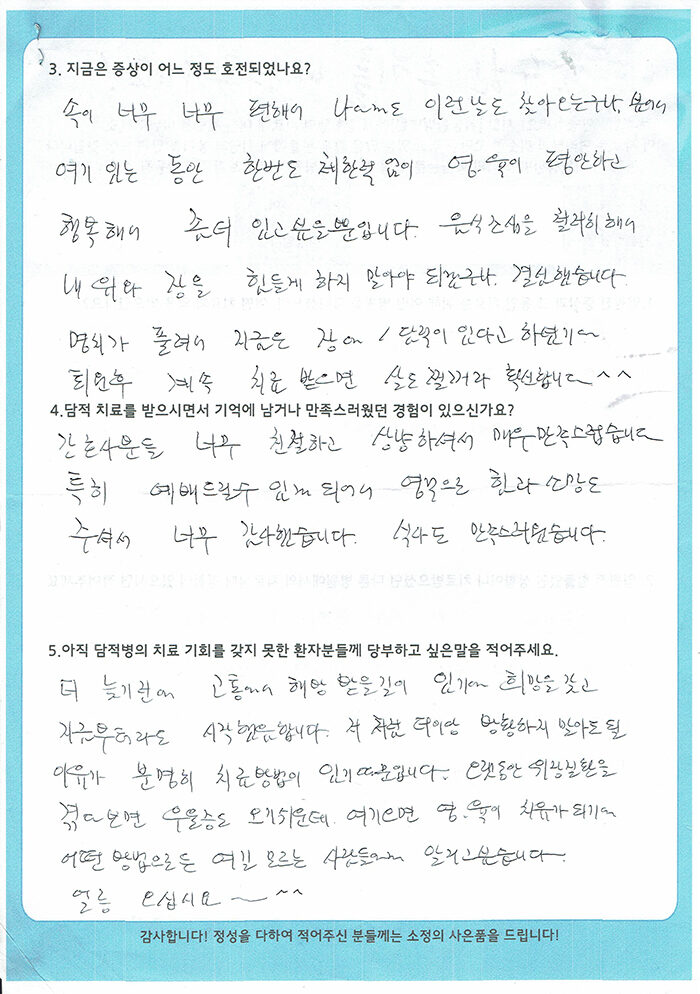 3. 지금은 증상이 어느 정도 호전되었나요?
속이 너무 너무 편해서 나에게도 이런날도 찾아오는구나,
여기 있는 동안 한번도 체한적 없이 영.육이 평안하고
행복해서 좀더 있고싶을뿐입니다. 음식조심을 철저히 해서
내 위와 장을 힘들게 하지 말아야 되겠구나. 결심했습니다.
명치가 풀려서 지금은 장에 / 단력이 있다고 하셨기에
퇴원후 계속 치료 받으면 살도 찔꺼라 확신합니다 ^^
4.담적 치료를 받으시면서 기억에 남거나 만족스러웠던 경험이 있으신가요?
간호사분들 너무 친절하고 상냥하셔서 매우만족스럽습니다
특히 예배드릴수 있게 되어서 영적으로 힘과 소망도
주셔서 너무 감사했습니다. 식사도 만족스러웠습니다.
5.아직 담적병의 치료 기회를 갖지 못한 환자분들께 당부하고 싶은말을 적어주세요.
더 늦기전에 고통에서 해방 받을길이 있기에 희망을 갖고
지금부터라도 시작했음합니다. 저 처럼 더이상 방황하지 말아도 될
이유가 분명히 치료방법이 있기때문입니다. 오랫동안 위장질환을
겪다보면 우울증도 오기쉬운데. 여기오면 영.육이 치유가 되기에
어떤 방법으로든 여길 모르는 사람들에게 알리고싶습니다.
얼릉 오십시요 ~ ^^
감사합니다! 정성을 다하여 적어주신 분들께는 소정의 사은품을 드립니다!